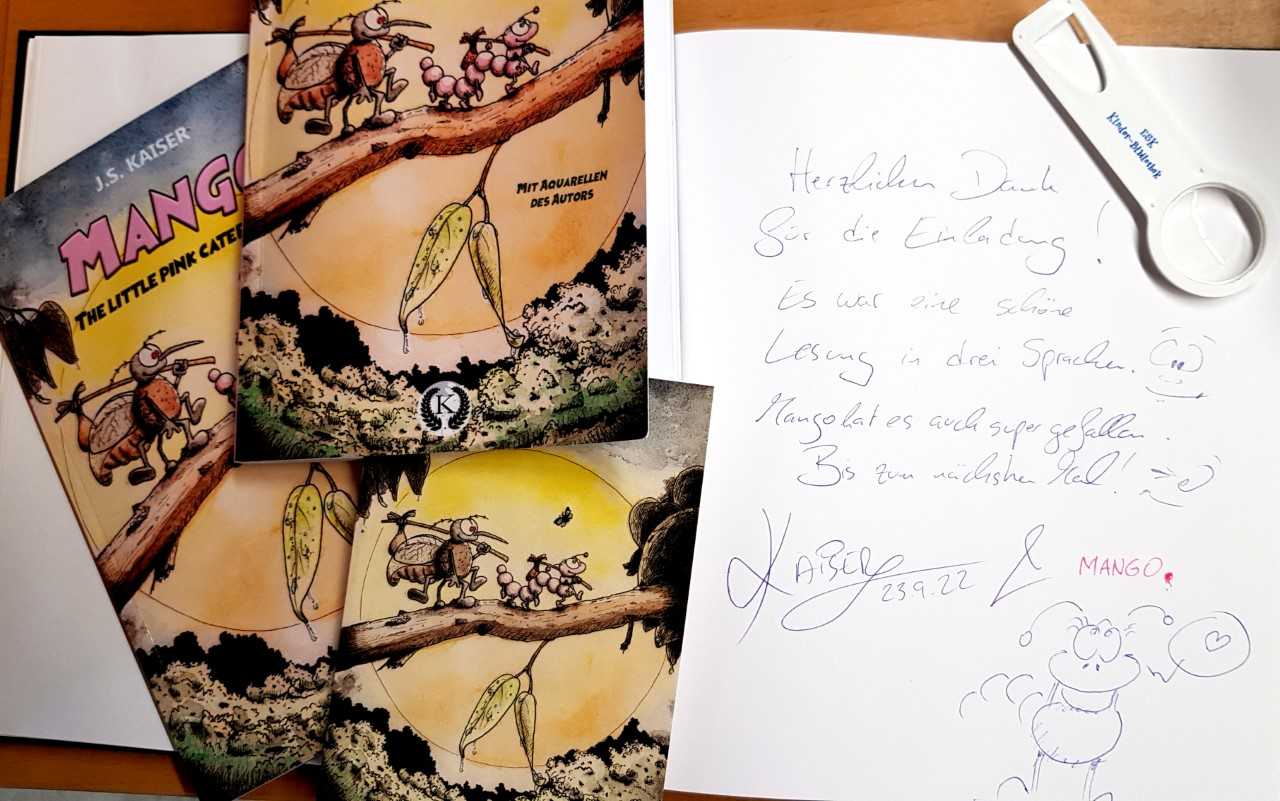 J.S. KAISER
MANGO
THE LITTLE PINK CATER
MIT AQUARELLEN
DES AUTORS
K
EBK
Kinder-Bibliothek
Herzlichen Dank
für die Einladung!
Es war eine schöne
Lesung in drei Sprachen.
Mango hat es auch super gefallen.
Bis zum nächsten Mal!
KAISER
23.9.22
&
MANGO.